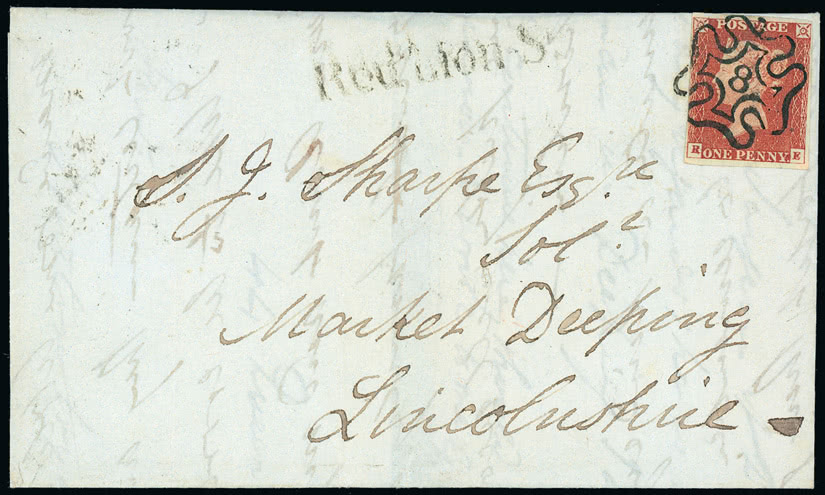 Red Lion St
POSTAGE
8
R E
ONE PENNY
S. J. Sharpe Esqre
Solr
Market Deeping
Lincolnshire